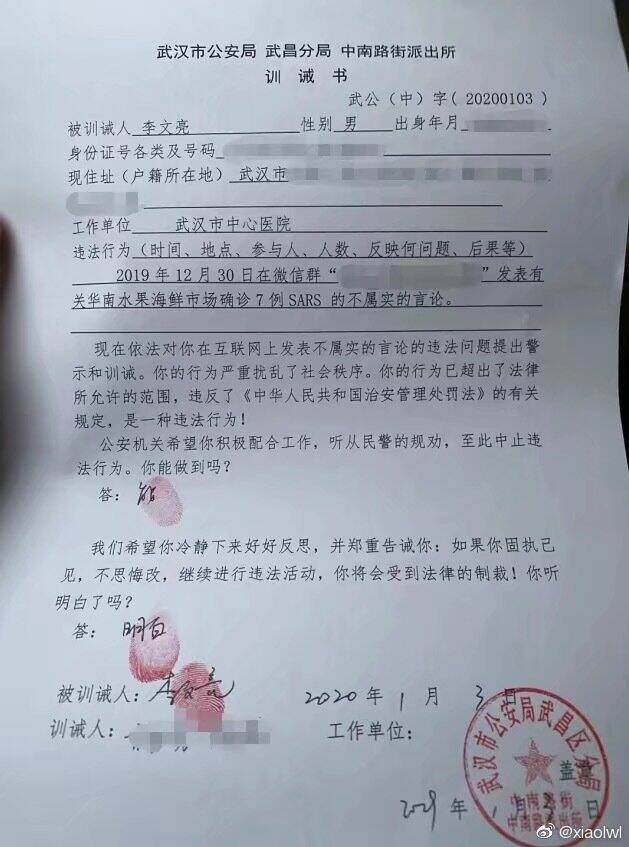 武汉市公安局 武昌分局 中南路街派出所
训 诫 书
武公（中）字（20200103）
被训诫人 李文亮 性别 男 出身年月
身份证号各类及号码
现住址（户籍所在地） 武汉市
工作单位 武汉市中心医院
违法行为（时间、地点、参与人、人数、反映何问题、后果等）
2019年12月30日在微信群“ ”发表有
关华南水果海鲜市场确诊7例SARS的不属实的言论。
现在依法对你在互联网上发表不属实的言论的违法问题提出警
示和训诫。你的行为严重扰乱了社会秩序。你的行为已超出了法律
所允许的范围，违反了《中华人民共和国治安管理处罚法》的有关
规定，是一种违法行为！
公安机关希望你积极配合工作，听从民警的规劝，至此中止违
法行为。你能做到吗？
答： 能
我们希望你冷静下来好好反思，并郑重告诫你：如果你固执己
见，不思悔改，继续进行违法活动，你将会受到法律的制裁！你听
明白了吗？
答： 明白
被训诫人：李文亮 2020年1月3日
训诫人： 工作单位：
武汉市公安局武昌区分局
盖章
中南路街
派出所
年1月3日
@xiaolwl